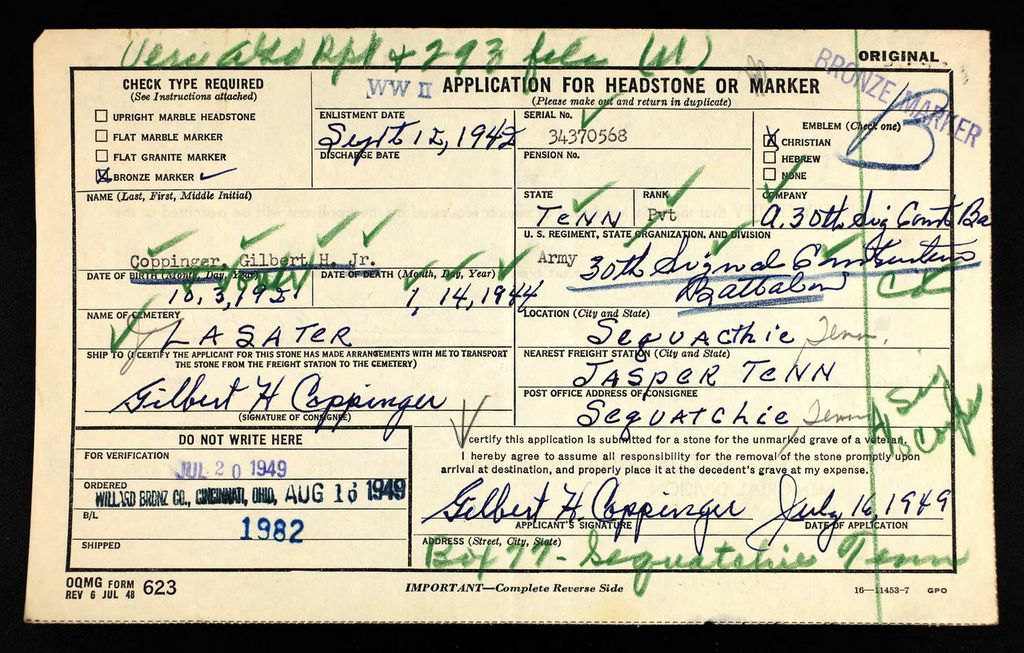 ORIGINAL
CHECK TYPE REQUIRED
(See Instructions attached)
UPRIGHT MARBLE HEADSTONE
FLAT MARBLE MARKER
FLAT GRANITE MARKER
BRONZE MARKER
WW II APPLICATION FOR HEADSTONE OR MARKER
(Please make out and return in duplicate)
BRONZE MARKER
B
ENLISTMENT DATE
Sept 12, 1942
DISCHARGE DATE
SERIAL No.
34370568
PENSION No.
EMBLEM (Check one)
X CHRISTIAN
HEBREW
NONE
NAME (Last, First, Middle Initial)
Coppinger, Gilbert H. Jr.
STATE
TENN
RANK
Pvt
COMPANY
A. 30th Sig Const Ba
U. S. REGIMENT, STATE ORGANIZATION, AND DIVISION
Army 30th Signal Construction
Battalion
DATE OF BIRTH (Month, Day, Year)
10, 3, 1921
DATE OF DEATH (Month, Day, Year)
1, 14, 1944
NAME OF CEMETERY
LASATER
LOCATION (City and State)
Sequacthie Tenn.
SHIP TO (I CERTIFY THE APPLICANT FOR THIS STONE HAS MADE ARRANGEMENTS WITH ME TO TRANSPORT
THE STONE FROM THE FREIGHT STATION TO THE CEMETERY)
Gilbert H Coppinger
(SIGNATURE OF CONSIGNEE)
NEAREST FREIGHT STATION (City and State)
JASPER TENN
POST OFFICE ADDRESS OF CONSIGNEE
Sequatchie Tenn
DO NOT WRITE HERE
FOR VERIFICATION
JUL 20 1949
ORDERED
WILLARD BRONZ CO., CINCINNATI, OHIO, AUG 16 1949
B/L
1982
SHIPPED
I certify this application is submitted for a stone for the unmarked grave of a veteran.
I hereby agree to assume all responsibility for the removal of the stone promptly upon
arrival at destination, and properly place it at the decedent's grave at my expense.
Gilbert H. Coppinger July 16, 1949
APPLICANT'S SIGNATURE DATE OF APPLICATION
ADDRESS (Street, City, State)
Box 77 - Sequatchie Tenn
OQMG FORM 623
REV 6 JUL 48
IMPORTANT—Complete Reverse Side
16—11453-7 GPO